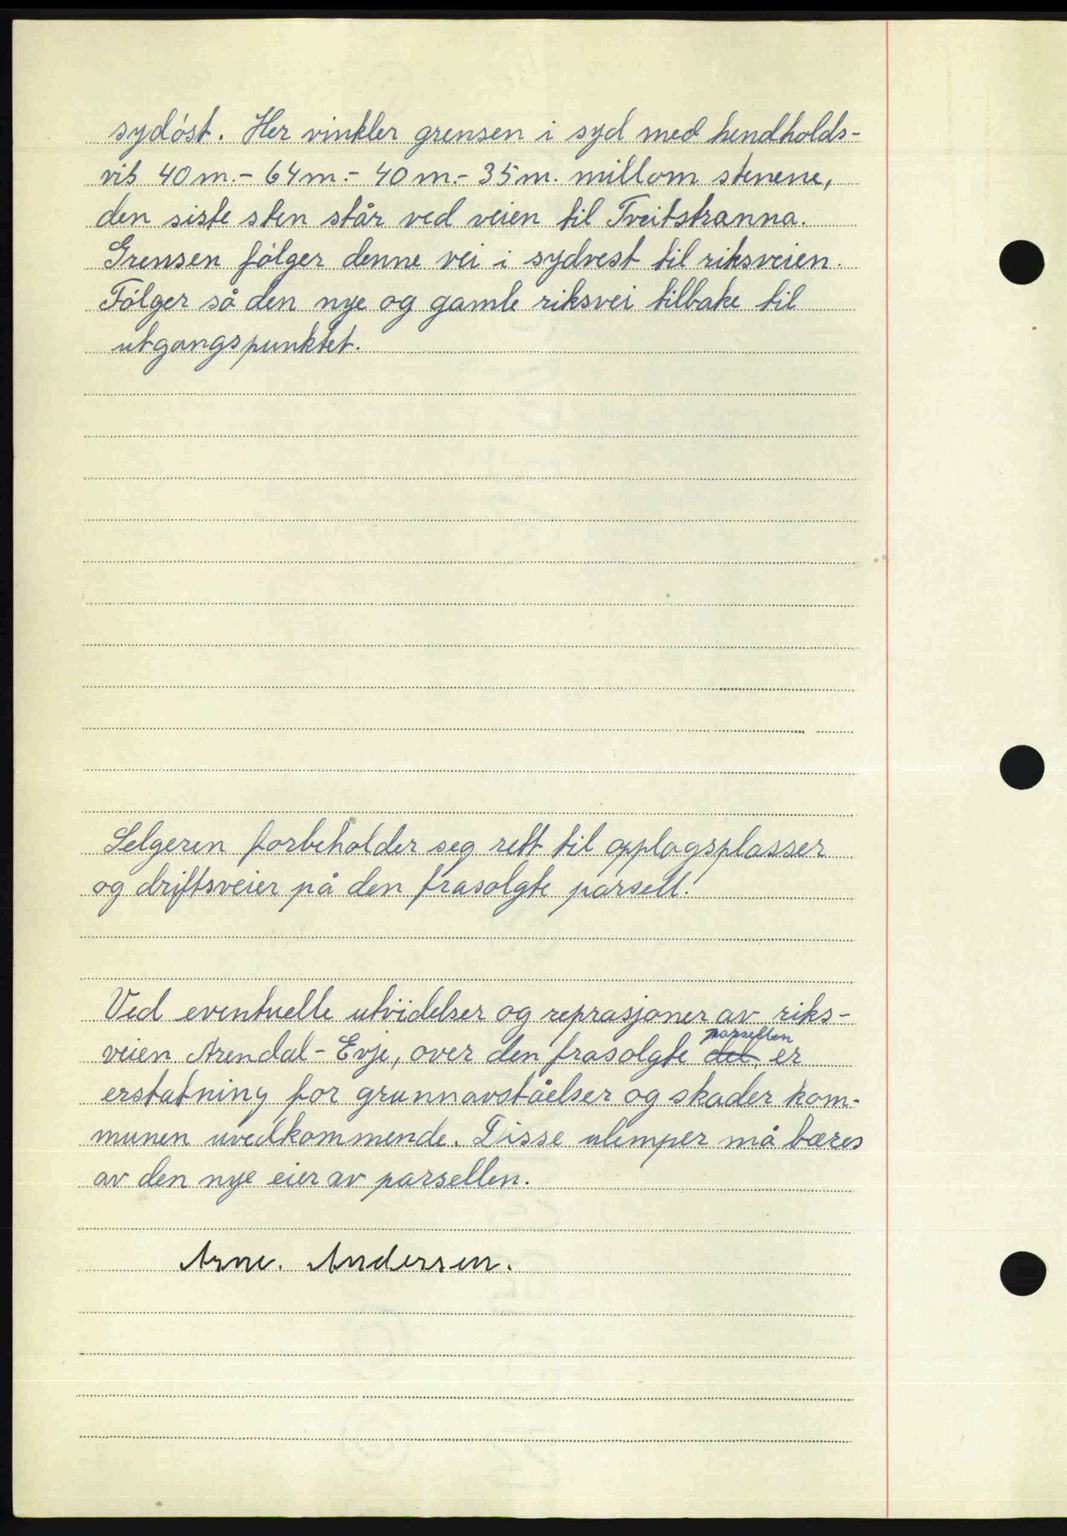 sydöst. Her vinkler grensen i syd med hendholds-
vis 40 m.- 64 m.- 40 m.- 35 m. millom stenene,
den siste sten står ved veien til Tveitstranna.
Grensen følger denne vei i sydvest til riksveien.
Følger så den nye og gamle riksvei tilbake til
utgangspunktet.
Selgeren forbeholder seg rett til opplagsplasser
og driftsveier på den frasolgte parsell.
Ved eventuelle utvidelser og reprasjoner av riks-
parsellen
veien Arendal - Evje, over den frasolgte del, er
erstatning for grunnavståelser og skader kom-
munen uvedkommende. Disse ulemper må bæres
av den nye eier av parsellen.
Arne. Andersen.